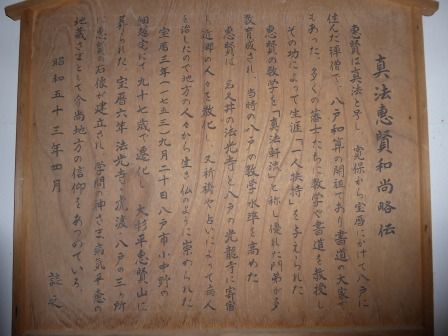 真法恵賢和尚略伝
恵賢は真法と号し、寛保から宝暦にかけて八戸に
住んだ禅僧で、八戸和算の開祖であり書道の大家で
もあった。多くの藩士たちに数学や書道を教授し
その功によって生涯「一人扶持」を与えられた
恵賢の数学を「真法軒流」と称し優れた門弟が多
数育成され、当時の八戸の数学水準を高めた
恵賢は、名久井の法光寺と八戸の光龍寺に寄宿
し近郷の人々を教化し、又祈祷や占いによって病人
を治したので地方の人々から生き仏のように崇められた
宝暦三年(一七五三)九月二十日八戸市小中野の
細越宅にて九十七歳で遷化し、大杉平恵賢山に
葬られた。宝暦六年法光寺、八戸の三ヶ所
に恵賢の石像が建立され、学問の神さま、病気平癒の
地蔵さまとして今尚地方の信仰をあつめている。
昭和五十三年四月